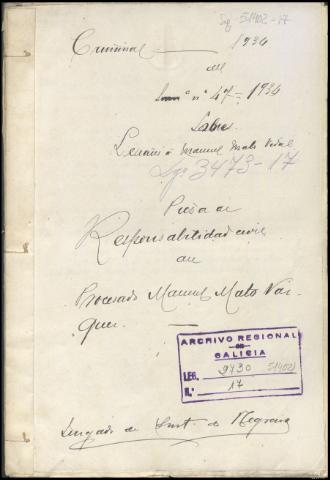 Sig 51402-17
Criminal — 1934
del
Sumº nº 47-1934
Sobre
Lesións á Manuel Mato Vidal
Lg: 3473-17
Pieza de
Responsabilidad civil
de
Procesado Manuel Mato Váz-
quez. —
ARCHIVO REGIONAL
DE
GALICIA
LEG. 9730 (51402)
N.º 17
Juzgado de Inst. de Negreira